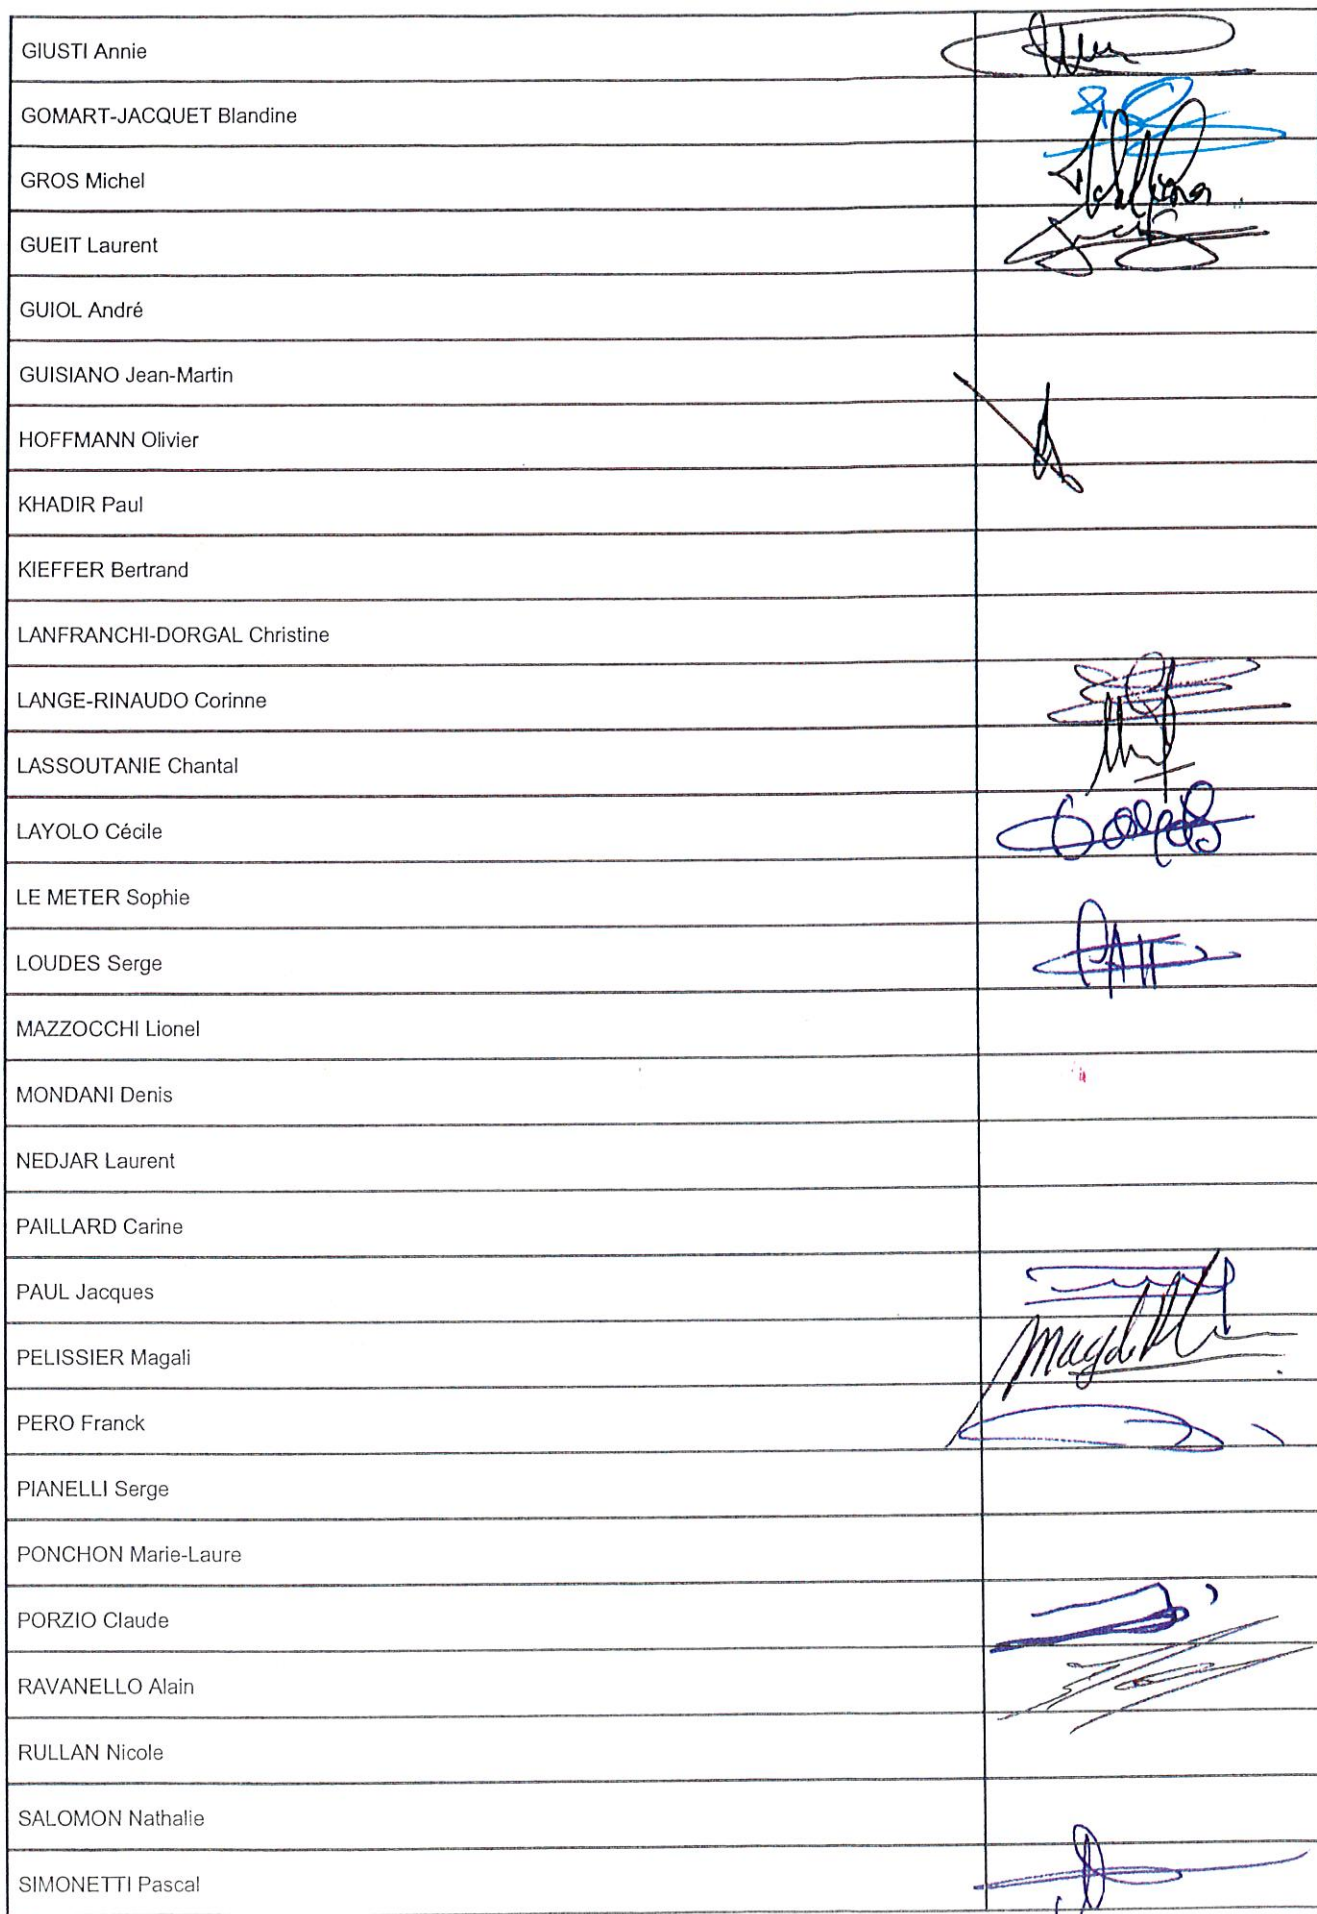 GIUSTI Annie
GOMART-JACQUET Blandine
GROS Michel
GUEIT Laurent
GUIOL André
GUISIANO Jean-Martin
HOFFMANN Olivier
KHADIR Paul
KIEFFER Bertrand
LANFRANCHI-DORGAL Christine
LANGE-RINAUDO Corinne
LASSOUTANIE Chantal
LAYOLO Cécile
LE METER Sophie
LOUDES Serge
MAZZOCCHI Lionel
MONDANI Denis
NEDJAR Laurent
PAILLARD Carine
PAUL Jacques
PELISSIER Magali
PERO Franck
PIANELLI Serge
PONCHON Marie-Laure
PORZIO Claude
RAVANELLO Alain
RULLAN Nicole
SALOMON Nathalie
SIMONETTI Pascal